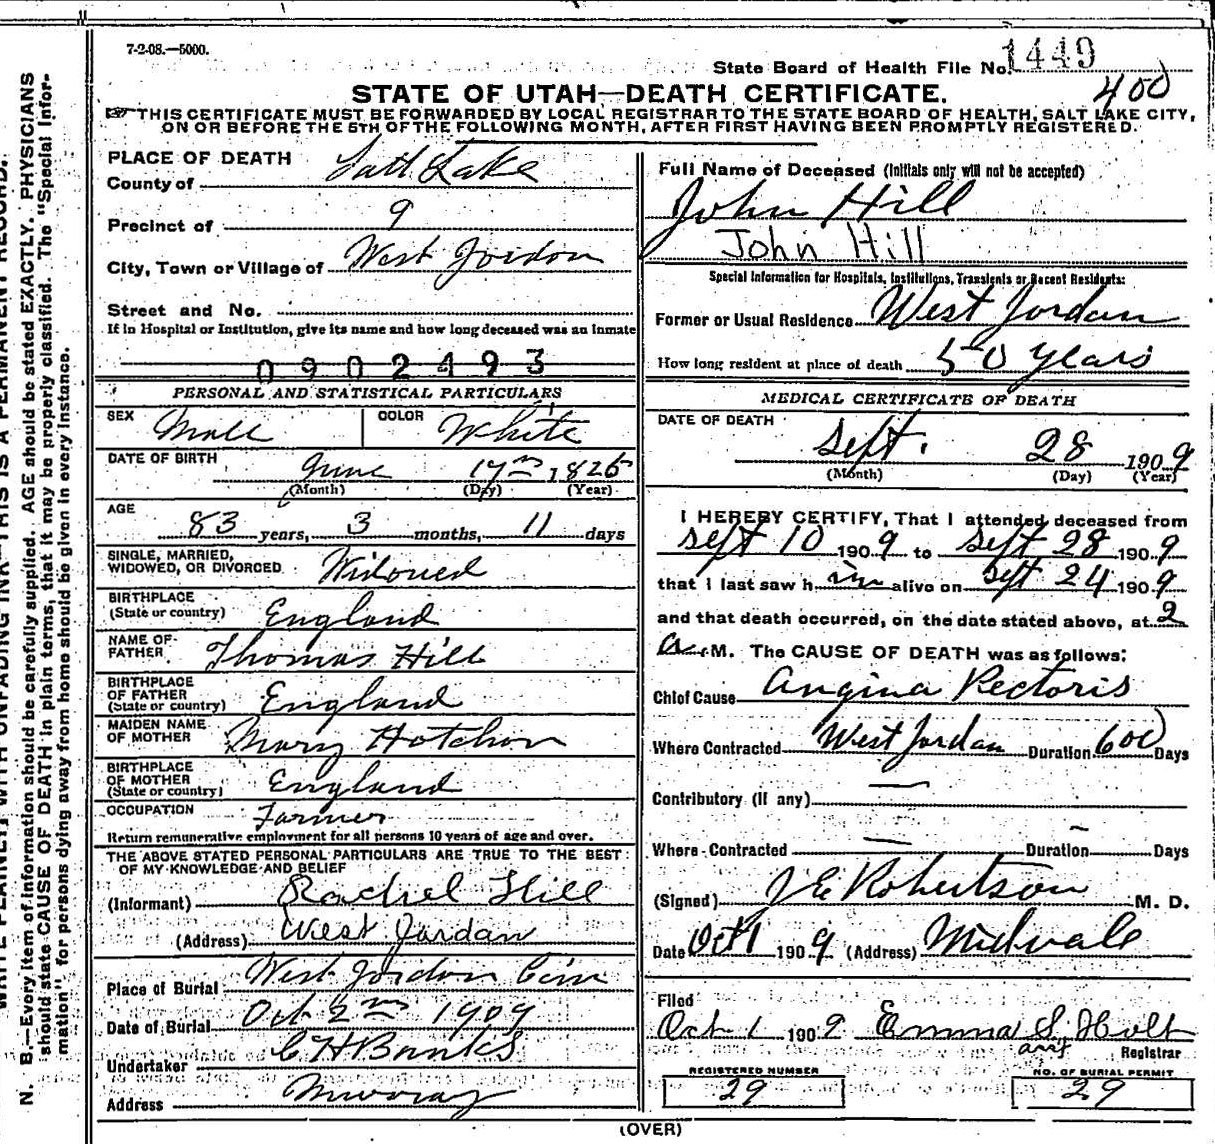 7-2-08.—5000.
State Board of Health File No. 1449
400
STATE OF UTAH—DEATH CERTIFICATE.
☞THIS CERTIFICATE MUST BE FORWARDED BY LOCAL REGISTRAR TO THE STATE BOARD OF HEALTH, SALT LAKE CITY,
ON OR BEFORE THE 5TH OF THE FOLLOWING MONTH, AFTER FIRST HAVING BEEN PROMPTLY REGISTERED.
PLACE OF DEATH
County of Salt Lake
Precinct of 9
City, Town or Village of West Jordon
Street and No.
If in Hospital or Institution, give its name and how long deceased was an inmate
0902493
PERSONAL AND STATISTICAL PARTICULARS
SEX Male COLOR White
DATE OF BIRTH June 17th 1826
(Month) (Day) (Year)
AGE
83 years, 3 months, 11 days
SINGLE, MARRIED,
WIDOWED, OR DIVORCED Widowed
BIRTHPLACE
(State or country) England
NAME OF
FATHER Thomas Hill
BIRTHPLACE
OF FATHER
(State or country) England
MAIDEN NAME
OF MOTHER Mary Hotchon
BIRTHPLACE
OF MOTHER
(State or country) England
OCCUPATION Farmer
Return remunerative employment for all persons 10 years of age and over.
THE ABOVE STATED PERSONAL PARTICULARS ARE TRUE TO THE BEST
OF MY KNOWLEDGE AND BELIEF
(Informant) Rachel Hill
(Address) West Jordan
Place of Burial West Jordon Cem
Date of Burial Oct 2nd 1909
Undertaker C H Banks
Address Murray
Full Name of Deceased (Initials only will not be accepted)
John Hill
John Hill
Special Information for Hospitals, Institutions, Transients or Recent Residents:
Former or Usual Residence West Jordan
How long resident at place of death 50 years
MEDICAL CERTIFICATE OF DEATH
DATE OF DEATH
Sept. 28 1909
(Month) (Day) (Year)
I HEREBY CERTIFY, That I attended deceased from
Sept 10 1909 to Sept 28 1909
that I last saw him alive on Sept 24 1909
and that death occurred, on the date stated above, at 2
a.M. The CAUSE OF DEATH was as follows:
Chief Cause Angina Pectoris
Where Contracted West Jordan Duration 600 Days
Contributory (If any) —
Where Contracted — Duration ~ Days
(Signed) J E Robertson M. D.
Date Oct 1 1909 (Address) Midvale
Filed
Oct 1 1909 Emma S. Holt
Registrar
REGISTERED NUMBER
29
NO. OF BURIAL PERMIT
29
(OVER)
N. B.—Every item of information should be carefully supplied. AGE should be stated EXACTLY. PHYSICIANS
should state CAUSE OF DEATH in plain terms, that it may be properly classified. The "Special Infor-
mation" for persons dying away from home should be given in every instance.